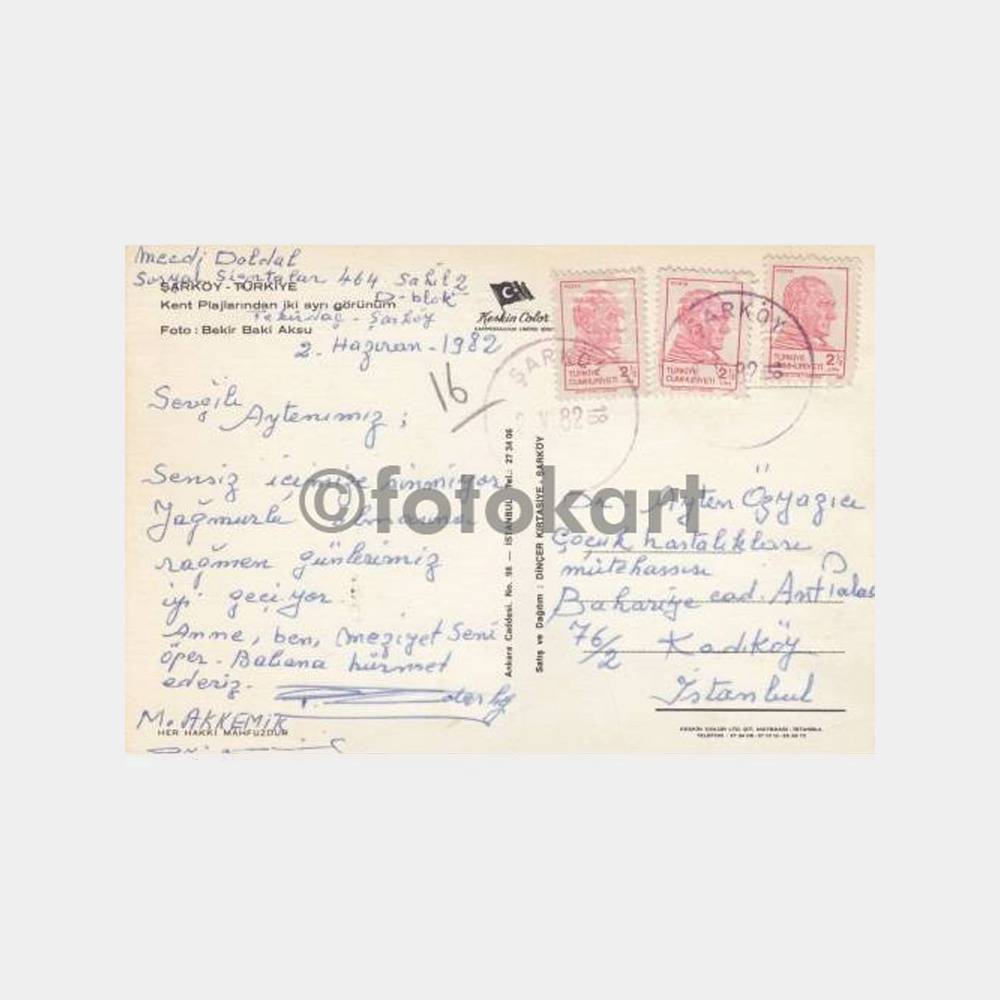 Mecdi Doldal
Sosyal Sigortalar 464 Sahil 2
D-blok
Tekirdağ - Şarköy
2. Haziran - 1982
ŞARKÖY - TÜRKİYE
Kent Plajlarından iki ayrı görünüm
Foto : Bekir Baki Aksu
Keskin Color
16
Sevgili
Aytenimiz ;
Sensiz içimize sinmiyor
Yağmurlu olmasına
rağmen günlerimiz
iyi geçiyor.
Anne, ben, Meziyet Seni
öper. Babana hürmet
ederiz.
M. AKKEMİK
HER HAKKI MAHFUZDUR
Ankara Caddesi. No. 98 — İSTANBUL Tel.: 27 34 06
Satış ve Dağıtım : DİNÇER KIRTASİYE - ŞARKÖY
POSTA
TÜRKİYE
CUMHURİYETİ
2½
LİRA
POSTA
TÜRKİYE
CUMHURİYETİ
2½
LİRA
POSTA
TÜRKİYE
CUMHURİYETİ
2½
LİRA
ŞARKÖ
V 82 18
ŞARKÖY
82 18
Dr. Ayten Özyazıcı
Çocuk hastalıkları
mütehassısı
Bahariye cad. Antı Palas
76/2 Kadıköy
İstanbul
KESKİN COLOR LTD. ŞTİ. MATBAASI - İSTANBUL
©fotokart